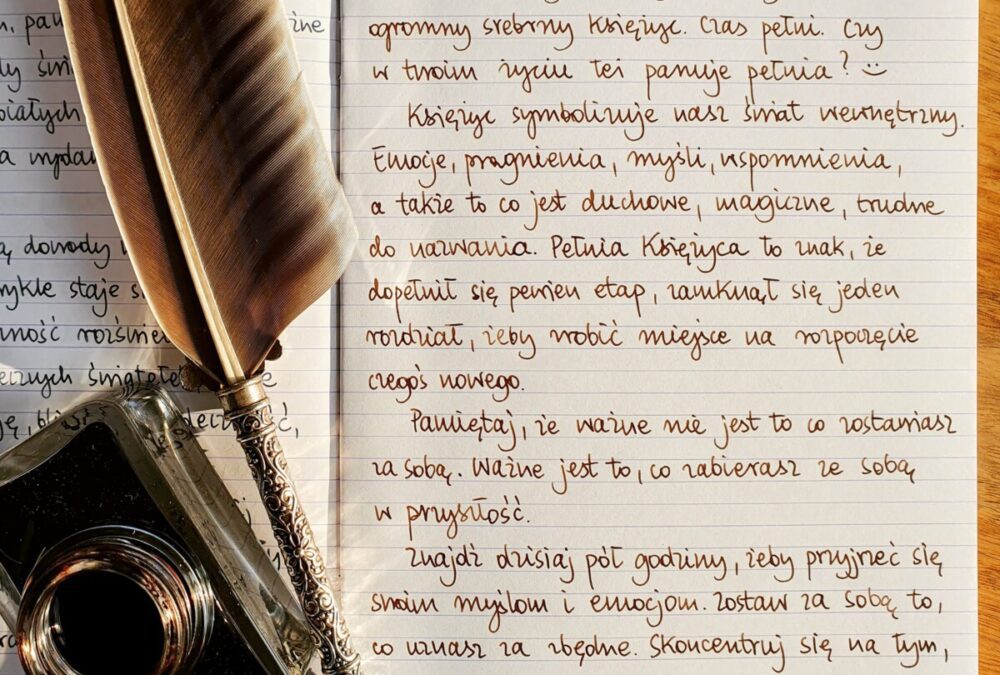 dowody
staje
światełe
ogromny srebrny Księżyc. Czas pełni. Czy
w twoim życiu też panuje pełnia? :)
Księżyc symbolizuje nasz świat wewnętrzny.
Emocje, pragnienia, myśli, wspomnienia,
a także to co jest duchowe, magiczne, trudne
do nazwania. Pełnia Księżyca to znak, że
dopełnił się pewien etap, zamknął się jeden
rozdział, żeby zrobić miejsce na rozpoczęcie
czegoś nowego.
Pamiętaj, że ważne nie jest to co zostawiasz
za sobą. Ważne jest to, co zabierasz ze sobą
w przyszłość.
Znajdź dzisiaj pół godziny, żeby przyjrzeć się
swoim myślom i emocjom. Zostaw za sobą to,
co uznasz za zbędne. Skoncentruj się na tym,